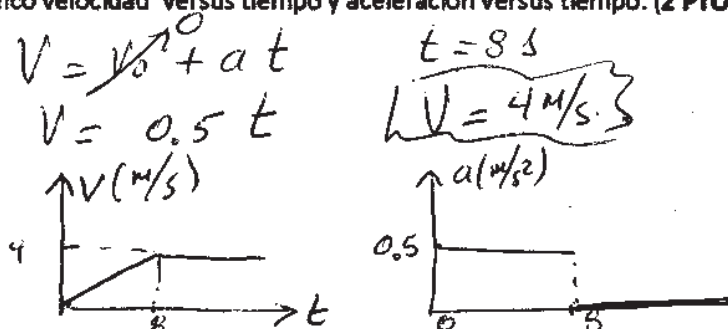 rico velocidad versus tiempo y aceleración versus tiempo. (2 PTO
V = V₀ + a t
0
t = 8 s
V = 0.5 t
V = 4 m/s.
V (m/s)
a (m/s²)
4
0.5
8
t
0
8